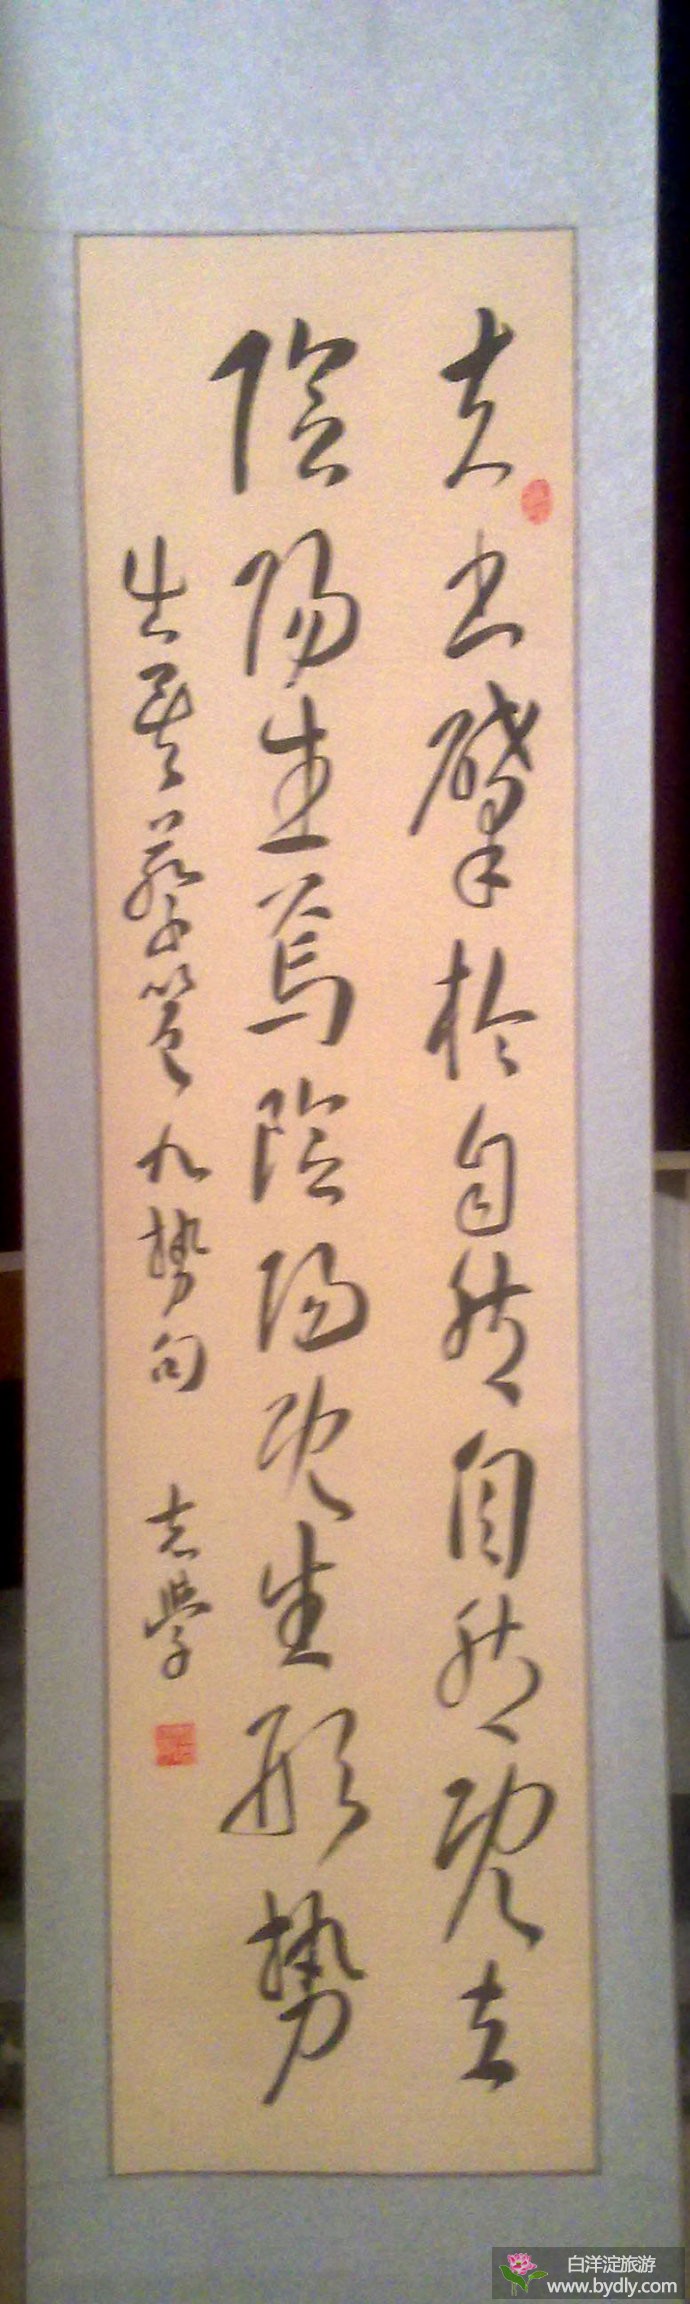 夫書肇於自然自然既立
陰陽生焉陰陽既生形势
出矣蔡邕九势句 志學
白洋淀旅游
www.bydly.com